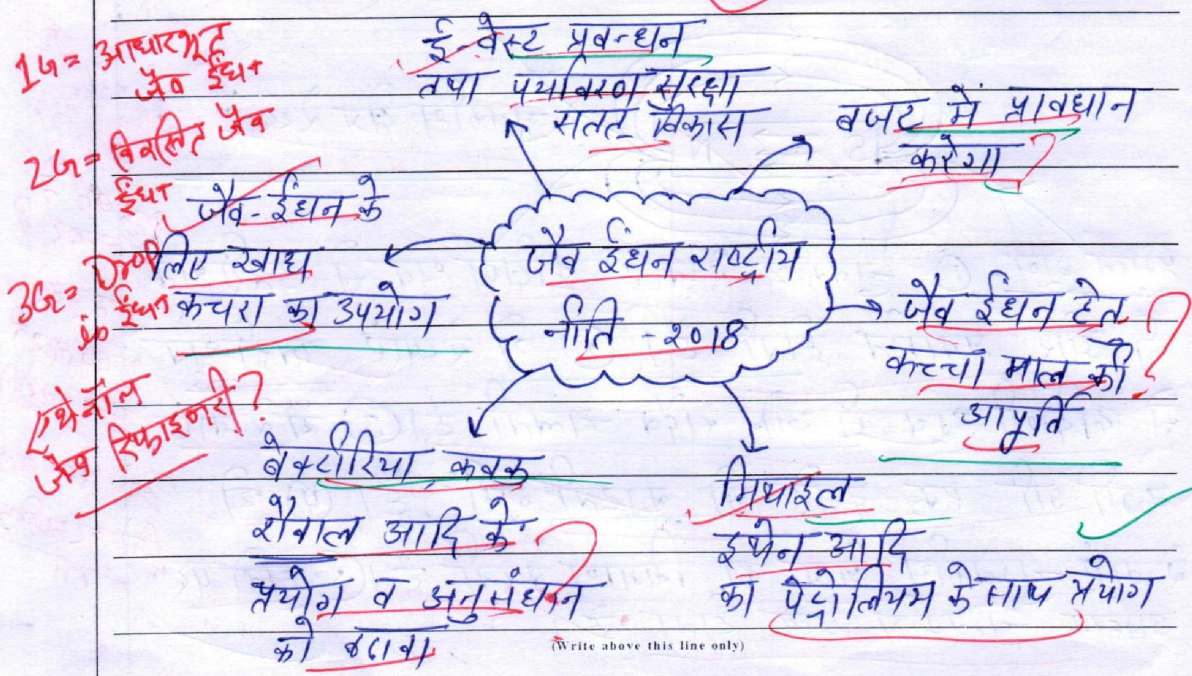 1G = आधारभूत
जैव ईंधन
2G = विकसित जैव
ईंधन
3G = Drop
in ईंधन
एथेनॉल
जैव रिफाइनरी?
ई-वेस्ट प्रबन्धन
तथा पर्यावरण सुरक्षा
सतत विकास
बजट में प्रावधान
करेगा ?
जैव-ईंधन के
लिए खाद्य
कचरा का उपयोग
जैव ईंधन राष्ट्रीय
नीति - २०18
जैव ईंधन हेतु
कच्चा माल की ?
आपूर्ति
बैक्टीरिया कवक
शैवाल आदि के ?
प्रयोग व अनुसंधान
को बढावा
मिथाइल
इथेन आदि
का पेट्रोलियम के साथ प्रयोग
(Write above this line only)